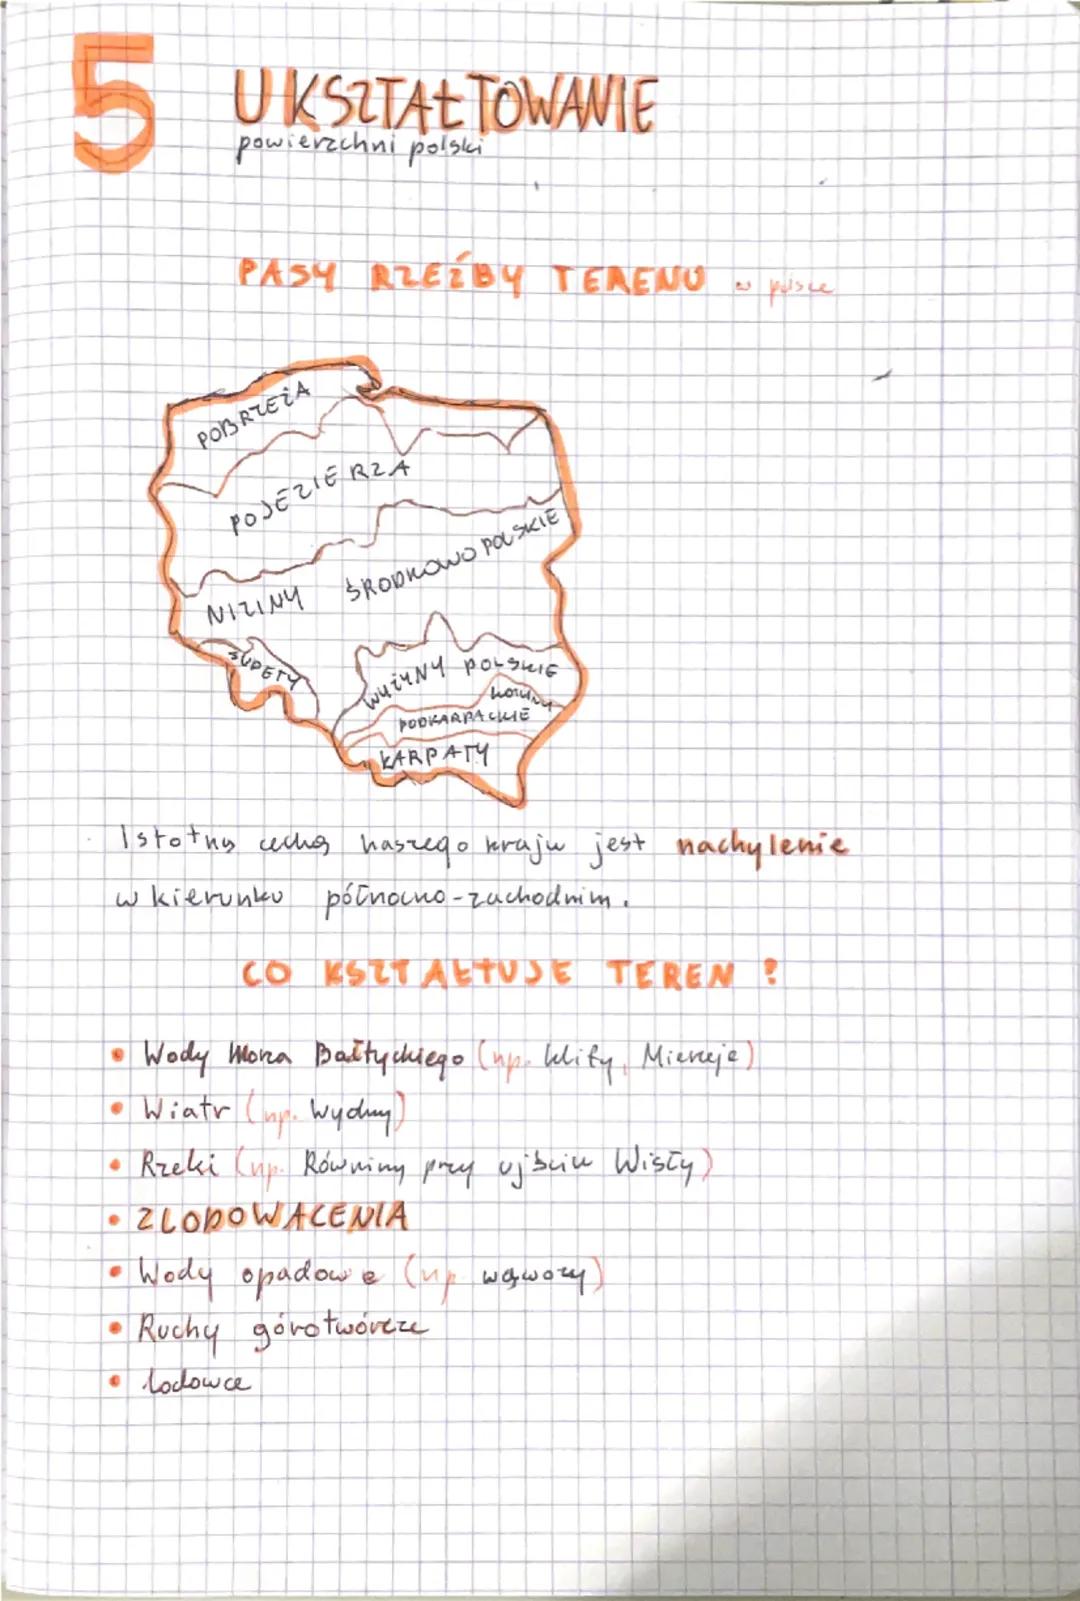 5
UKSZTAŁTOWANIE
powierzchni polski
PASY RZEŹBY TERENU w polsce
POBRZEŻA
POJEZIERZA
NIZINY ŚRODKOWO POLSKIE
SUDETY
WYŻYNY POLSKIE
KOTLINY
PODKARPACKIE
KARPATY
Istotną cechą naszego kraju jest nachylenie
w kierunku północno-zachodnim.
CO KSZTAŁTUJE TEREN?
• Wody Morza Bałtyckiego (np. klify, Mierzeje)
• Wiatr (np. Wydmy)
• Rzeki (np. Równiny przy ujściu Wisły)
• ZLODOWACENIA
• Wody opadowe (np. wąwozy)
• Ruchy górotwórcze
• lodowce